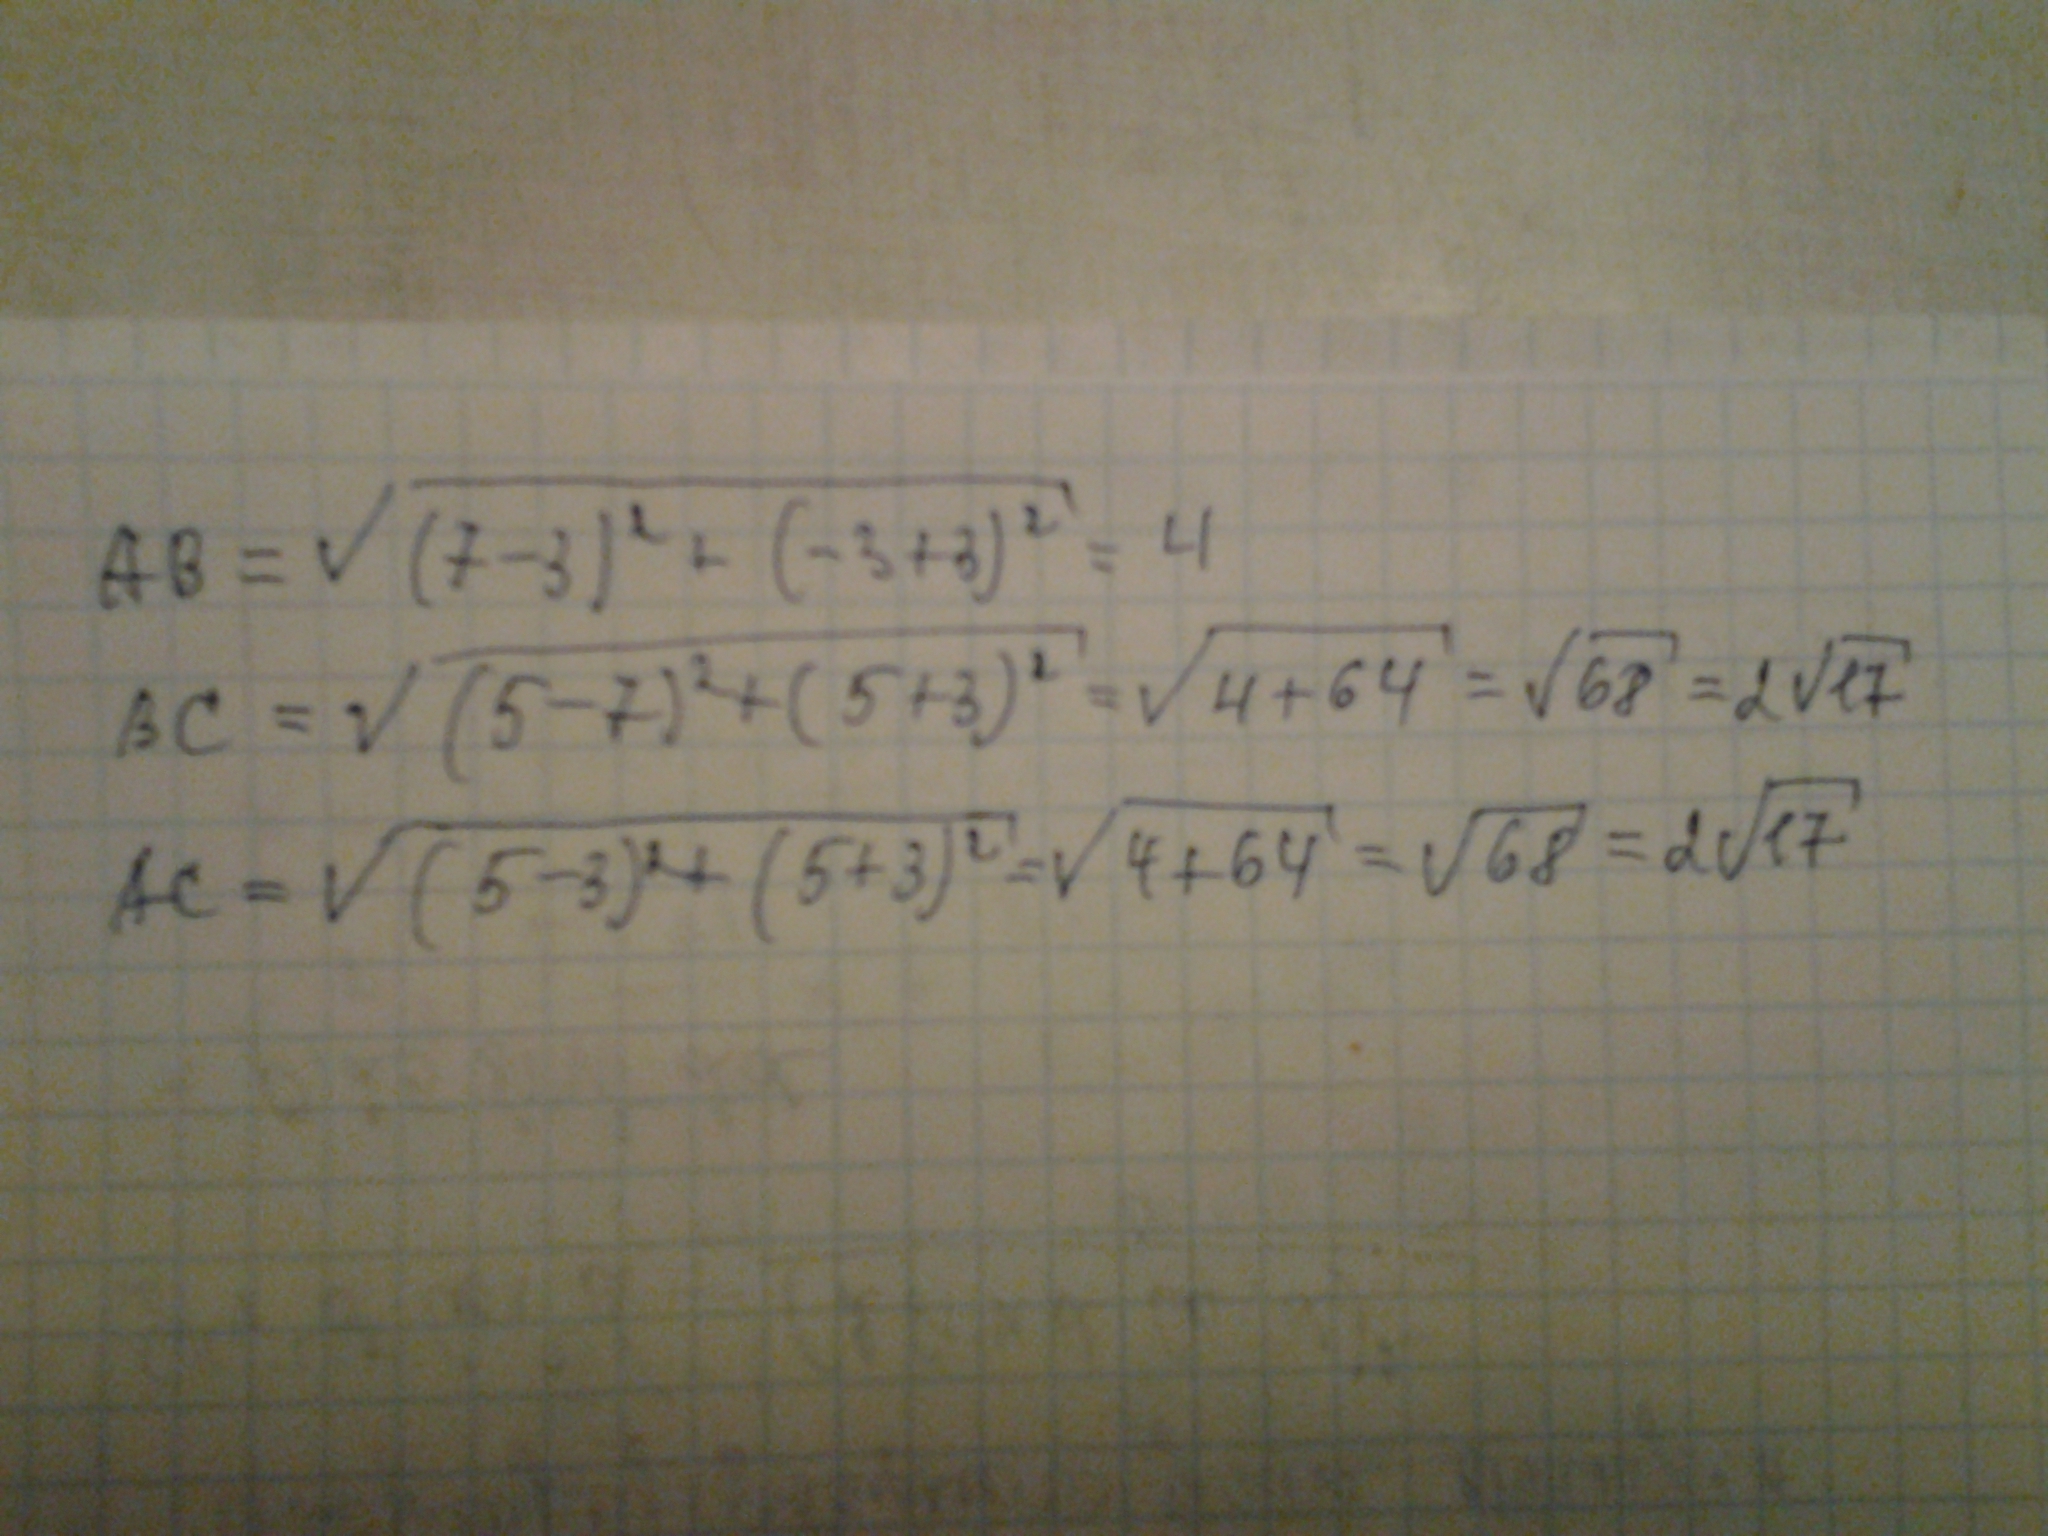 AB = √(7-3)² + (-3+3)² = 4
BC = √(5-7)² + (5+3)² = √4+64 = √68 = 2√17
AC = √(5-3)² + (5+3)² = √4+64 = √68 = 2√17